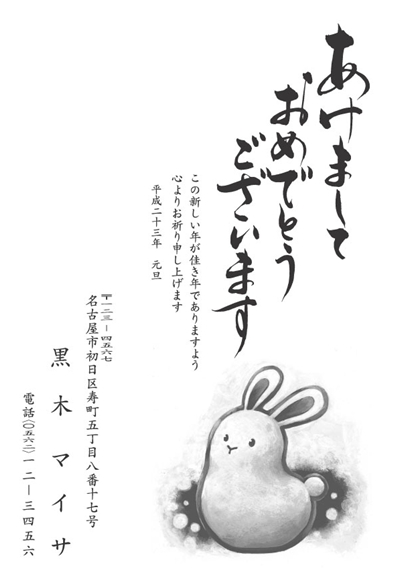 あけまして
おめでとう
ございます
この新しい年が佳き年でありますよう
心よりお祈り申し上げます
平成二十三年　元旦
〒一二三－四五六七
名古屋市初日区寿町五丁目八番十七号
黒木マイサ
電話(〇五六二)一二－三四五六